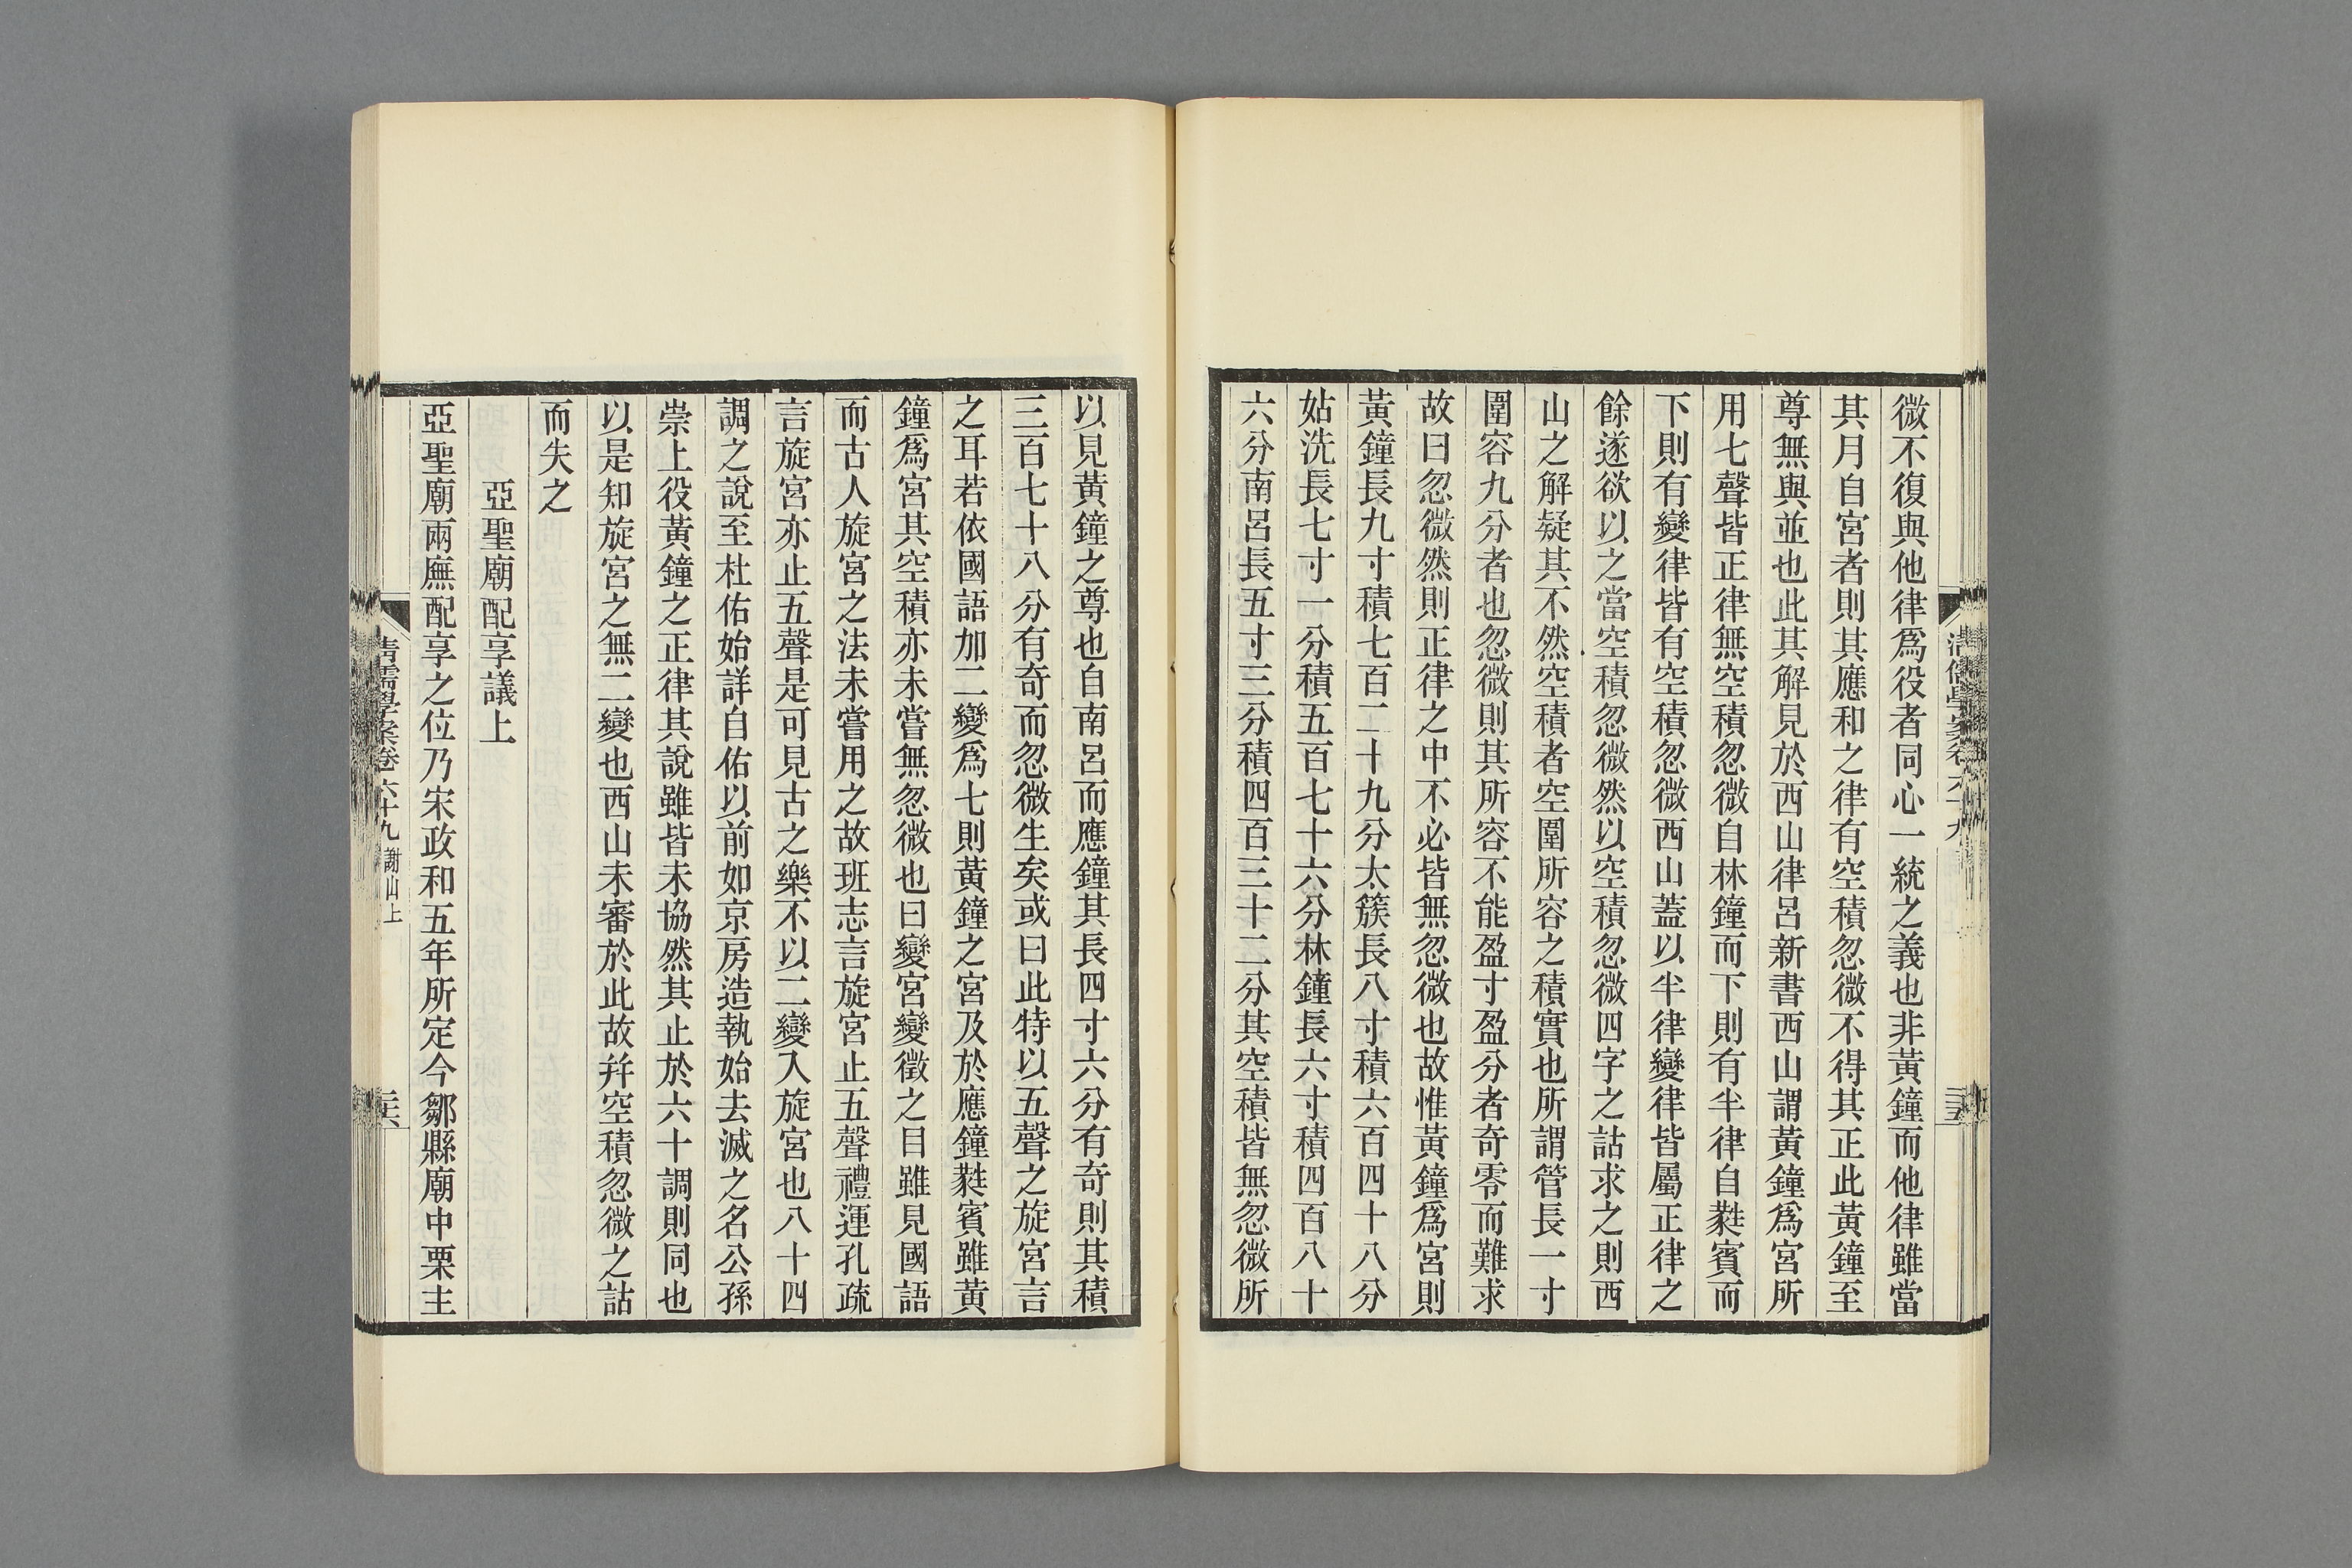 微不復與他律爲役者同心一統之義也非黃鐘而他律雖當
其月自宮者則其應和之律有空積忽微不得其正此黃鐘至
尊無與並也此其解見於西山律呂新書西山謂黃鐘爲宮所
用七聲皆正律無空積忽微自林鐘而下則有半律自蕤賓而
下則有變律皆有空積忽微西山蓋以半律變律皆屬正律之
餘遂欲以之當空積忽微然以空積忽微四字之詁求之則西
山之解疑其不然空積者空圍所容之積實也所謂管長一寸
圍容九分者也忽微則其所容不能盈寸盈分者奇零而難求
故曰忽微然則正律之中不必皆無忽微也故惟黃鐘爲宮則
黃鐘長九寸積七百二十九分太簇長八寸積六百四十八分
姑洗長七寸一分積五百七十六分林鐘長六寸積四百八十
六分南呂長五寸三分積四百三十二分其空積皆無忽微所
以見黃鐘之尊也自南呂而應鐘其長四寸六分有奇則其積
三百七十八分有奇而忽微生矣或曰此特以五聲之旋宮言
之耳若依國語加二變爲七則黃鐘之宮及於應鐘蕤賓雖黃
鐘爲宮其空積亦未嘗無忽微也曰變宮變徵之目雖見國語
而古人旋宮之法未嘗用之故班志言旋宮止五聲禮運孔疏
言旋宮亦止五聲是可見古之樂不以二變入旋宮也八十四
調之說至杜佑始詳自佑以前如京房造執始去滅之名公孫
崇上役黃鐘之正律其說雖皆未協然其止於六十調則同也
以是知旋宮之無二變也西山未審於此故幷空積忽微之詁
而失之
亞聖廟配享議上
亞聖廟兩廡配享之位乃宋政和五年所定今鄒縣廟中栗主
清儒學案卷六十九 謝山上
二六